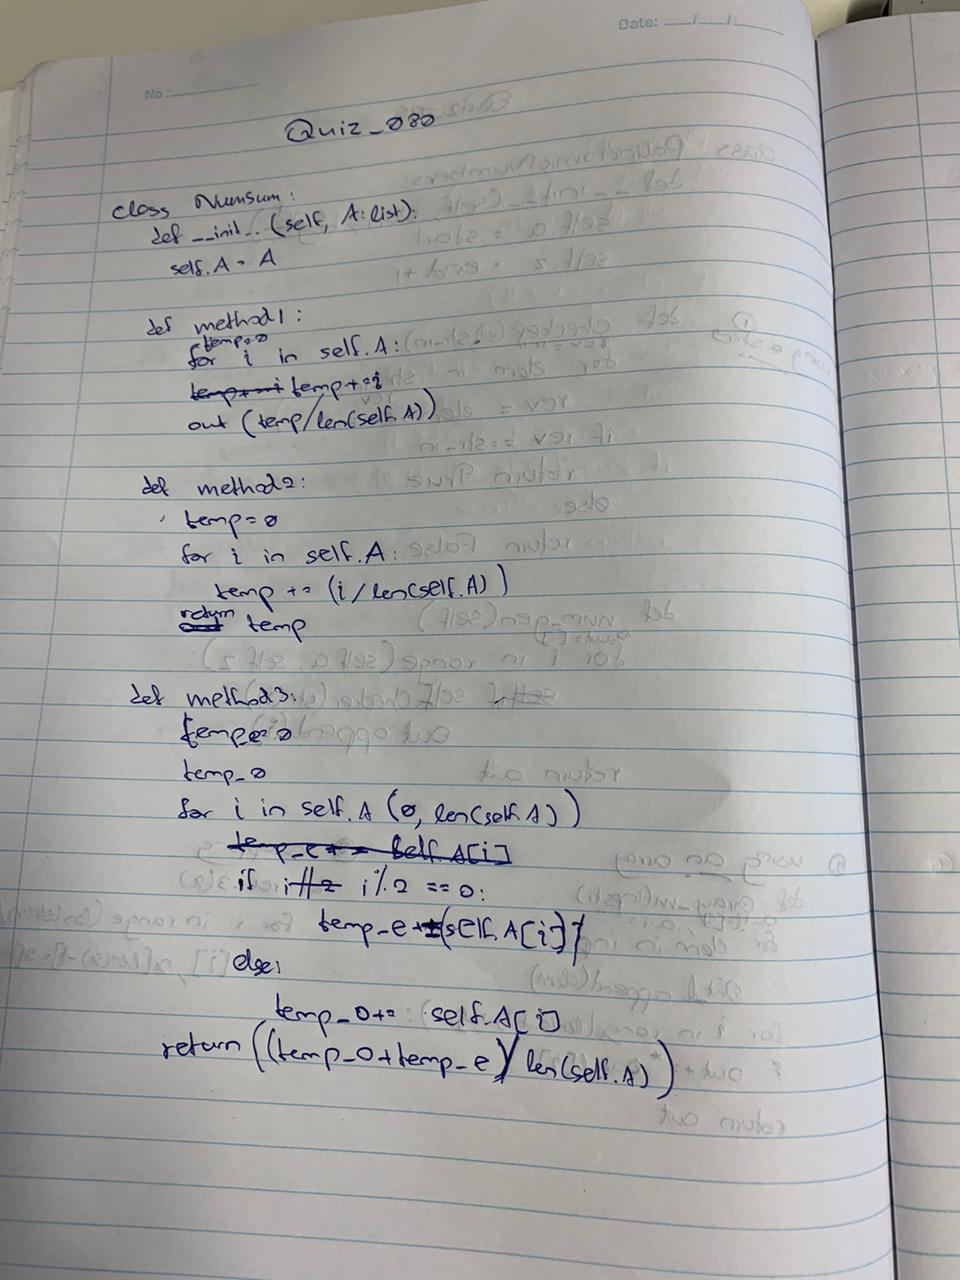 Date: __/__/__
No:
Quiz_080
class NumSum:
def __init__ (self, A: list):
self.A = A
def method1:
temp=0
for i in self.A:
temp+=i
out (temp/len(self.A))
def method2:
temp=0
for i in self.A:
temp += (i/len(self.A))
return temp
def method3:
temp_e=0
temp_0
for i in self.A (0, len(self.A))
if i%2 == 0:
temp_e+=(self.A[i])
else:
temp_0+= self.A[i]
return ((temp_0+temp_e)/len(self.A))